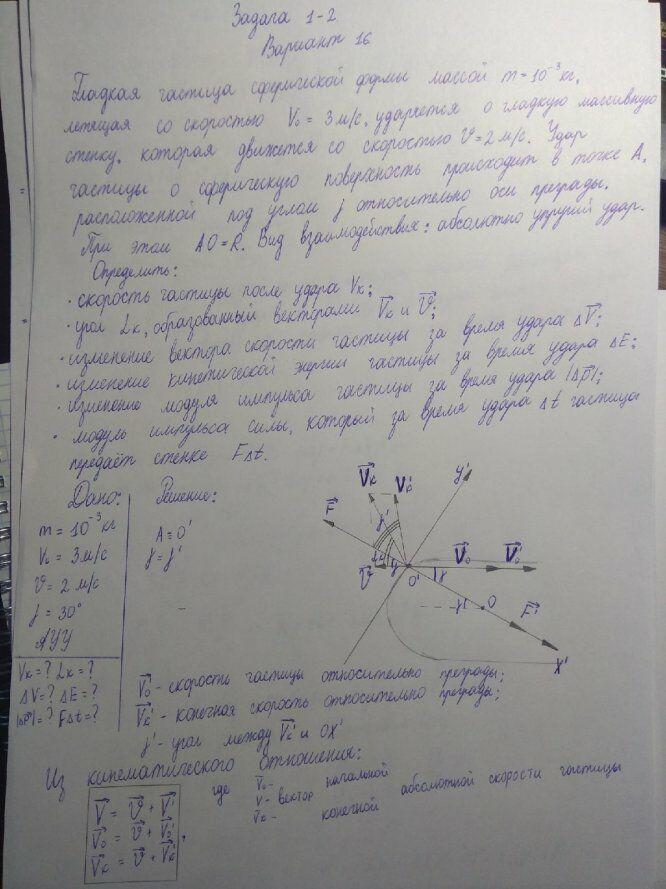 Задача 1-2.
Вариант 16
Гладкая частица сферической формы массой m = 10⁻³ кг,
летящая со скоростью V₀ = 3 м/с, ударяется о гладкую массивную
стенку, которая движется со скоростью ϑ = 2 м/с. Удар
частицы о сферическую поверхность происходит в точке A,
расположенной под углом γ относительно оси преграды.
При этом AO = R. Вид взаимодействия: абсолютно упругий удар.
Определить:
· скорость частицы после удара Vк;
· угол αк, образованный векторами V⃗к и ϑ⃗;
· изменение вектора скорости частицы за время удара ΔV⃗;
· изменение кинетической энергии частицы за время удара ΔE;
· изменение модуля импульса частицы за время удара |Δp⃗|;
· модуль импульса силы, который за время удара Δt частица
передаёт стенке FΔt.
Дано:
m = 10⁻³ кг
V₀ = 3 м/с
ϑ = 2 м/с
γ = 30°
АУУ
Vк = ? αк = ?
ΔV = ? ΔE = ?
|Δp⃗| = ? FΔt = ?
Решение:
A = O'
γ = γ'
V⃗к
V⃗к'
y'
F⃗
γ'
αк
γ
ϑ⃗
O'
γ
V⃗₀
V⃗₀'
γ'
O
F⃗'
X'
V⃗₀' - скорость частицы относительно преграды;
V⃗к' - конечная скорость относительно преграды;
γ' - угол между V⃗к' и OX'
Из кинематического отношения:
V⃗ = ϑ⃗ + V⃗'
V⃗₀ = ϑ⃗ + V⃗₀'
V⃗к = ϑ⃗ + V⃗к'
, где
V⃗₀ - начальной
V - вектор абсолютной скорости частицы
V⃗к - конечной